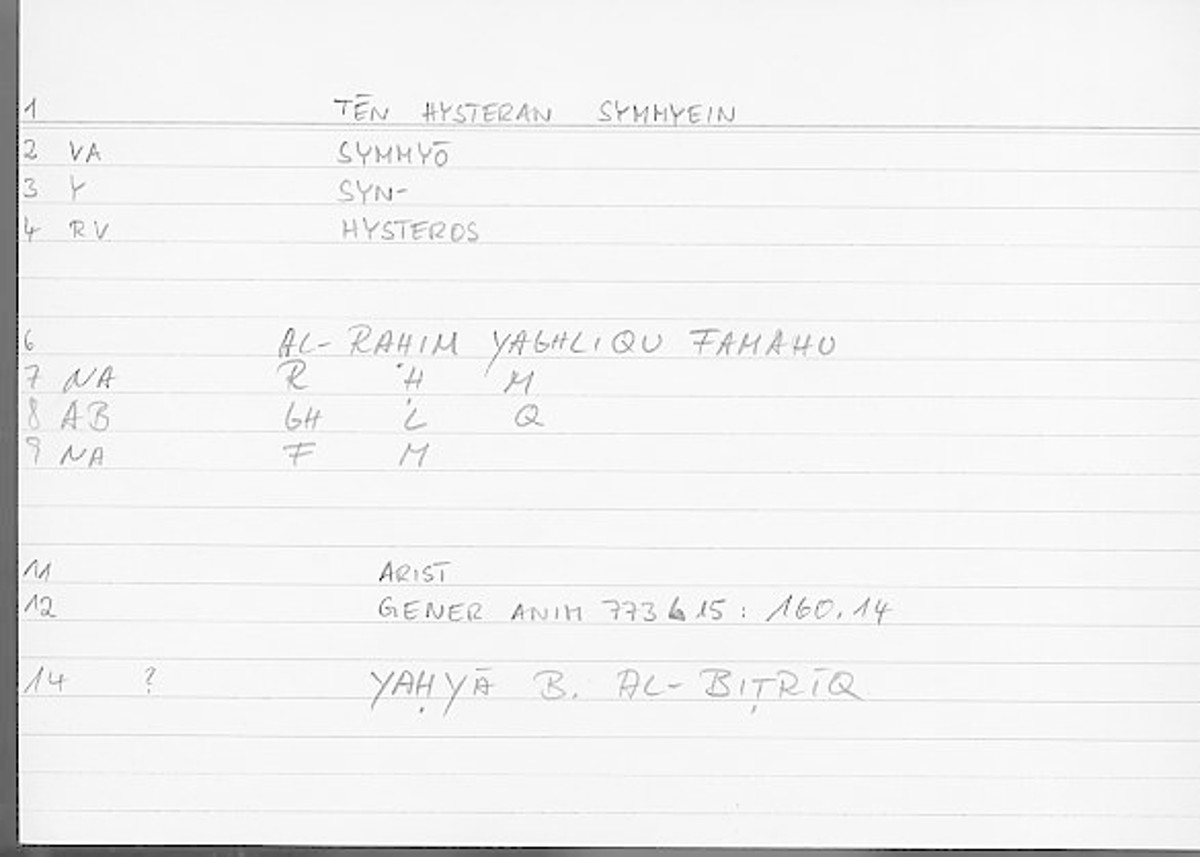 1 TĒN HYSTERAN SYMMYEIN
2 VA SYMMYŌ
3 Y SYN-
4 RV HYSTEROS
6 AL-RAHIM YAGHLIQU FAMAHU
7 NA R Ḥ M
8 AB GH L Q
9 NA F M
11 ARIST
12 GENER ANIM 773 b 15 : 160.14
14 ? YAḤYĀ B. AL-BIṬRĪQ